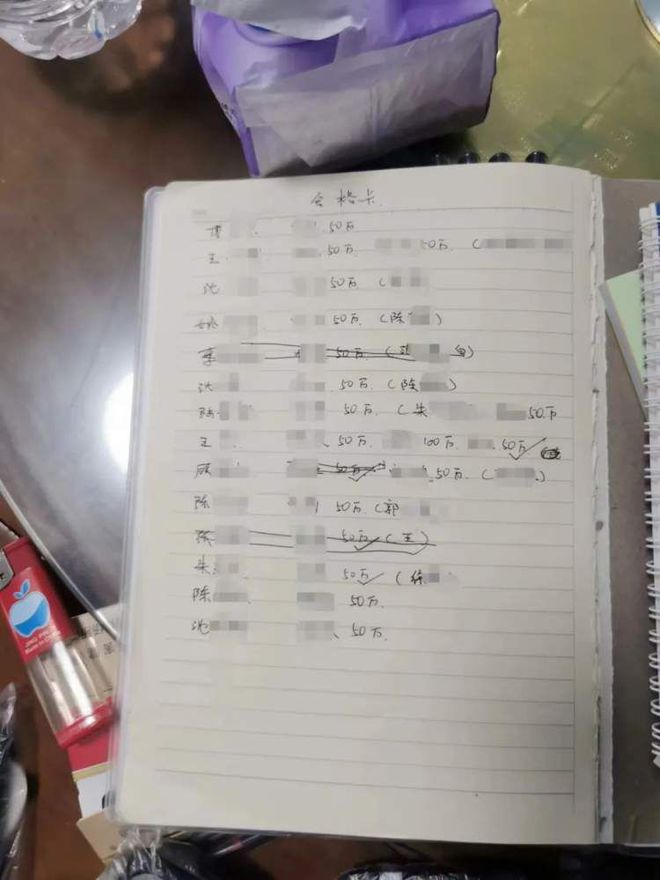 合格卡
50万
王 50万 50万 (
沈 50万 (
姚 50万 (陈 )
50万 (
沈 50万 (陈 )
陆 50万 (朱 50万
王 50万 100万 50万
顾 50万 50万 (
陈 50万 (郭
张 50万 (王)
朱 50万 (徐
陈 50万
沈 50万